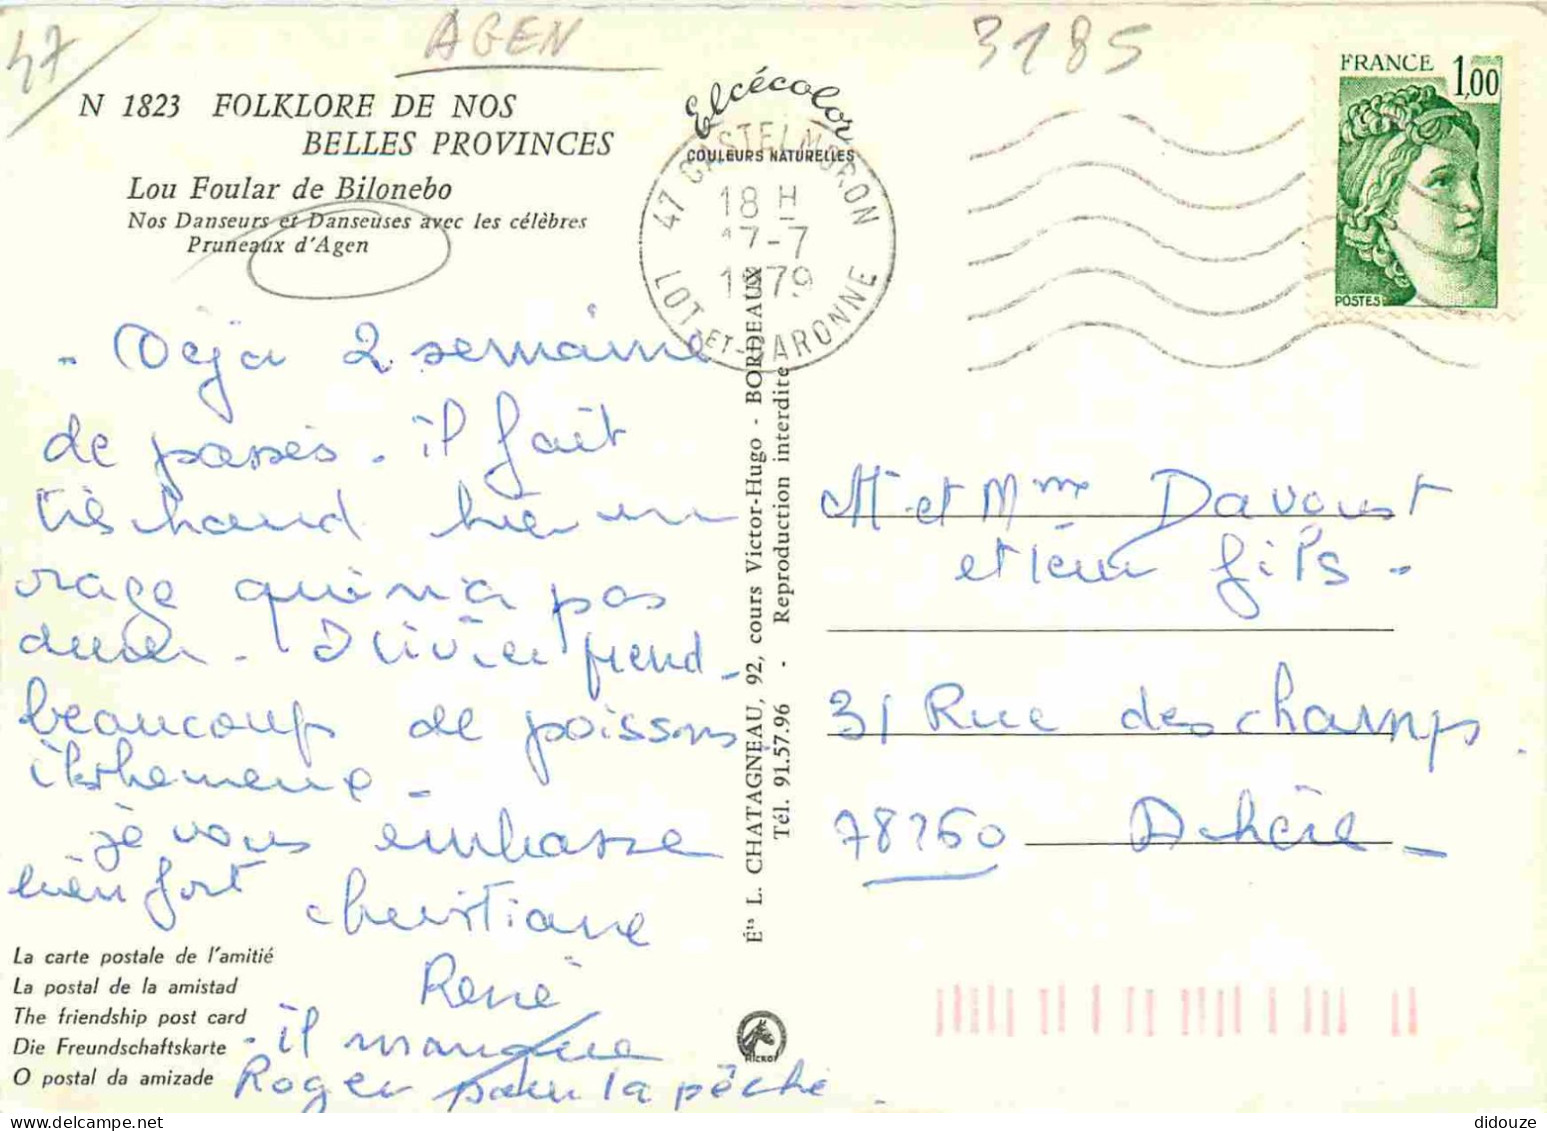 47
AGEN
3185
N 1823 FOLKLORE DE NOS
BELLES PROVINCES
Lou Foular de Bilonebo
Nos Danseurs et Danseuses avec les célèbres
Pruneaux d'Agen
Elcécolor
COULEURS NATURELLES
47 CASTELMORON
18 H
17-7
1979
LOT-ET-GARONNE
FRANCE 1,00
POSTES
- Déja 2 semaine
de passés. il fait
très chaud hier un
orage qui n'a pas
durer. Olivier prend
beaucoup de poissons
je vous embrasse
bien fort Christiane
René
- il manque
Roger pour la pêche.
La carte postale de l'amitié
La postal de la amistad
The friendship post card
Die Freundschaftskarte
O postal da amizade
Éts L. CHATAGNEAU, 92, cours Victor-Hugo - BORDEAUX
Tél. 91.57.96 - Reproduction interdite
M. et Mme Davoust
et leur fils -
31 Rue des champs.
78260 Achère -
didouze